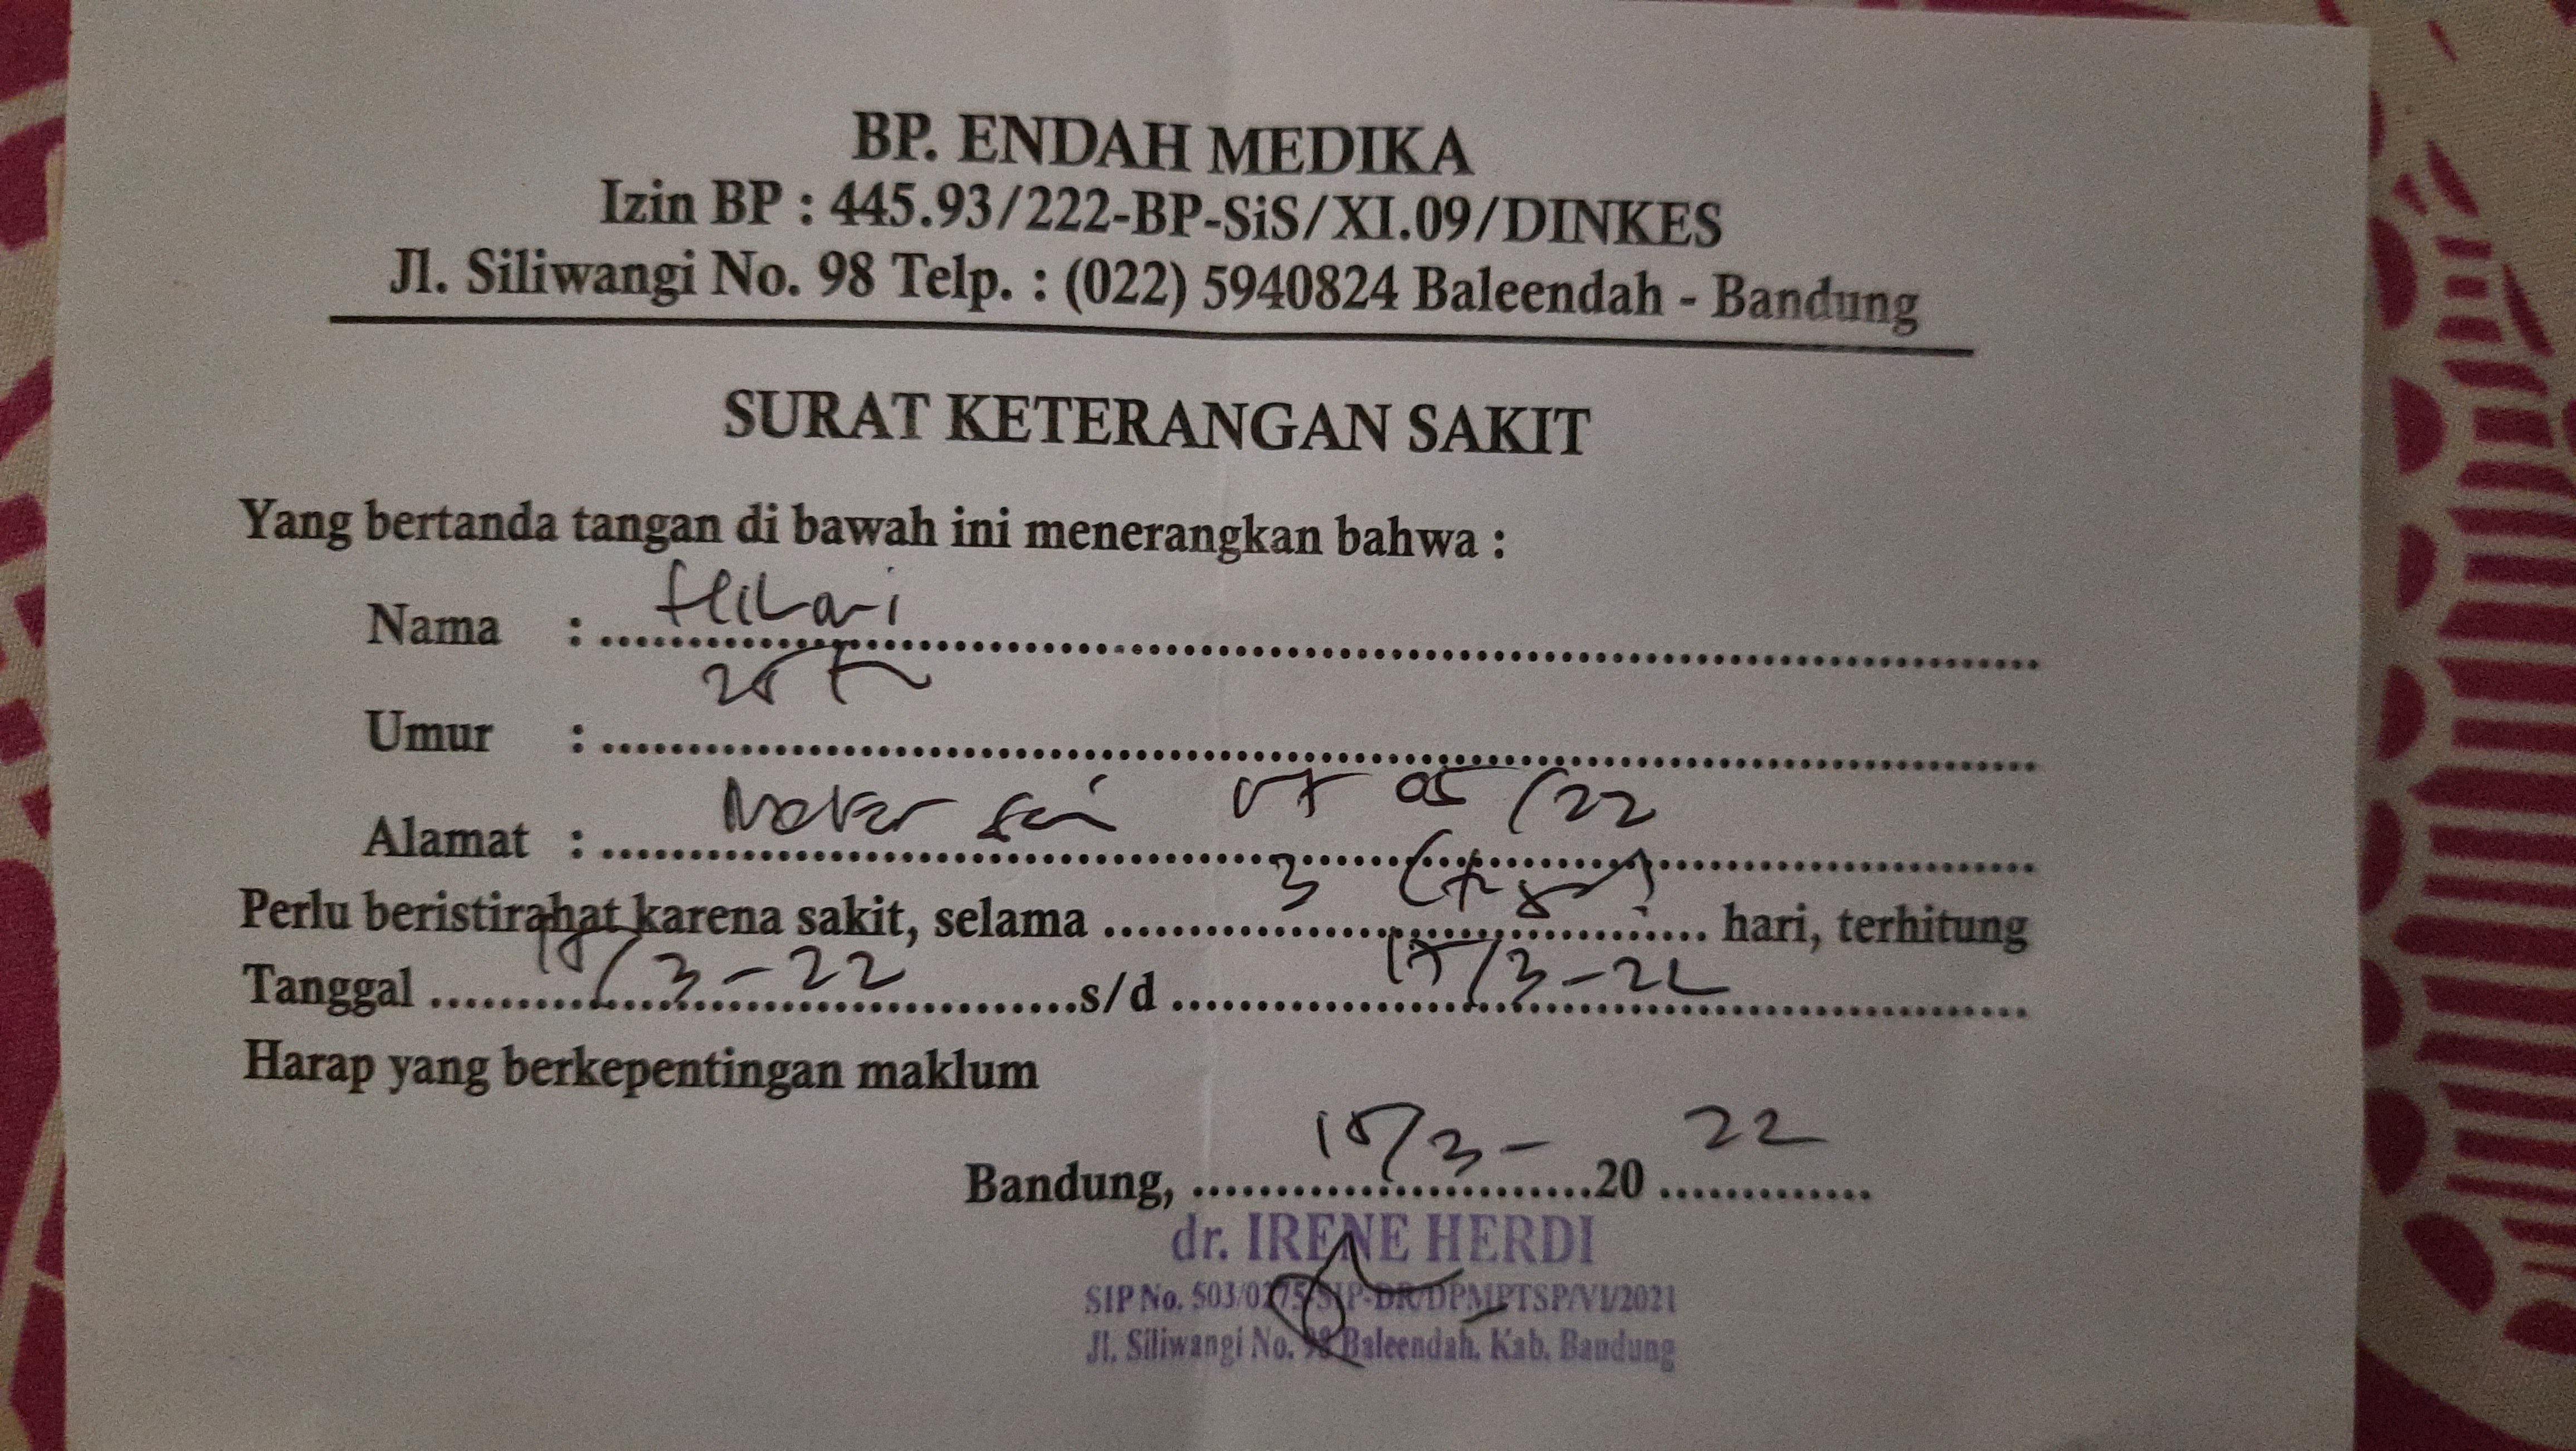 BP. ENDAH MEDIKA
Izin BP : 445.93/222-BP-SiS/XI.09/DINKES
Jl. Siliwangi No. 98 Telp. : (022) 5940824 Baleendah - Bandung
SURAT KETERANGAN SAKIT
Yang bertanda tangan di bawah ini menerangkan bahwa :
Nama :
Umur :
Alamat :
Perlu beristirahat karena sakit, selama 3 hari, terhitung
Tanggal /3-22 s/d /3-22
Harap yang berkepentingan maklum
Bandung, /3- 20 22
dr. IRENE HERDI
SIP No.
Jl. Siliwangi No. 98 Baleendah, Kab. Bandung